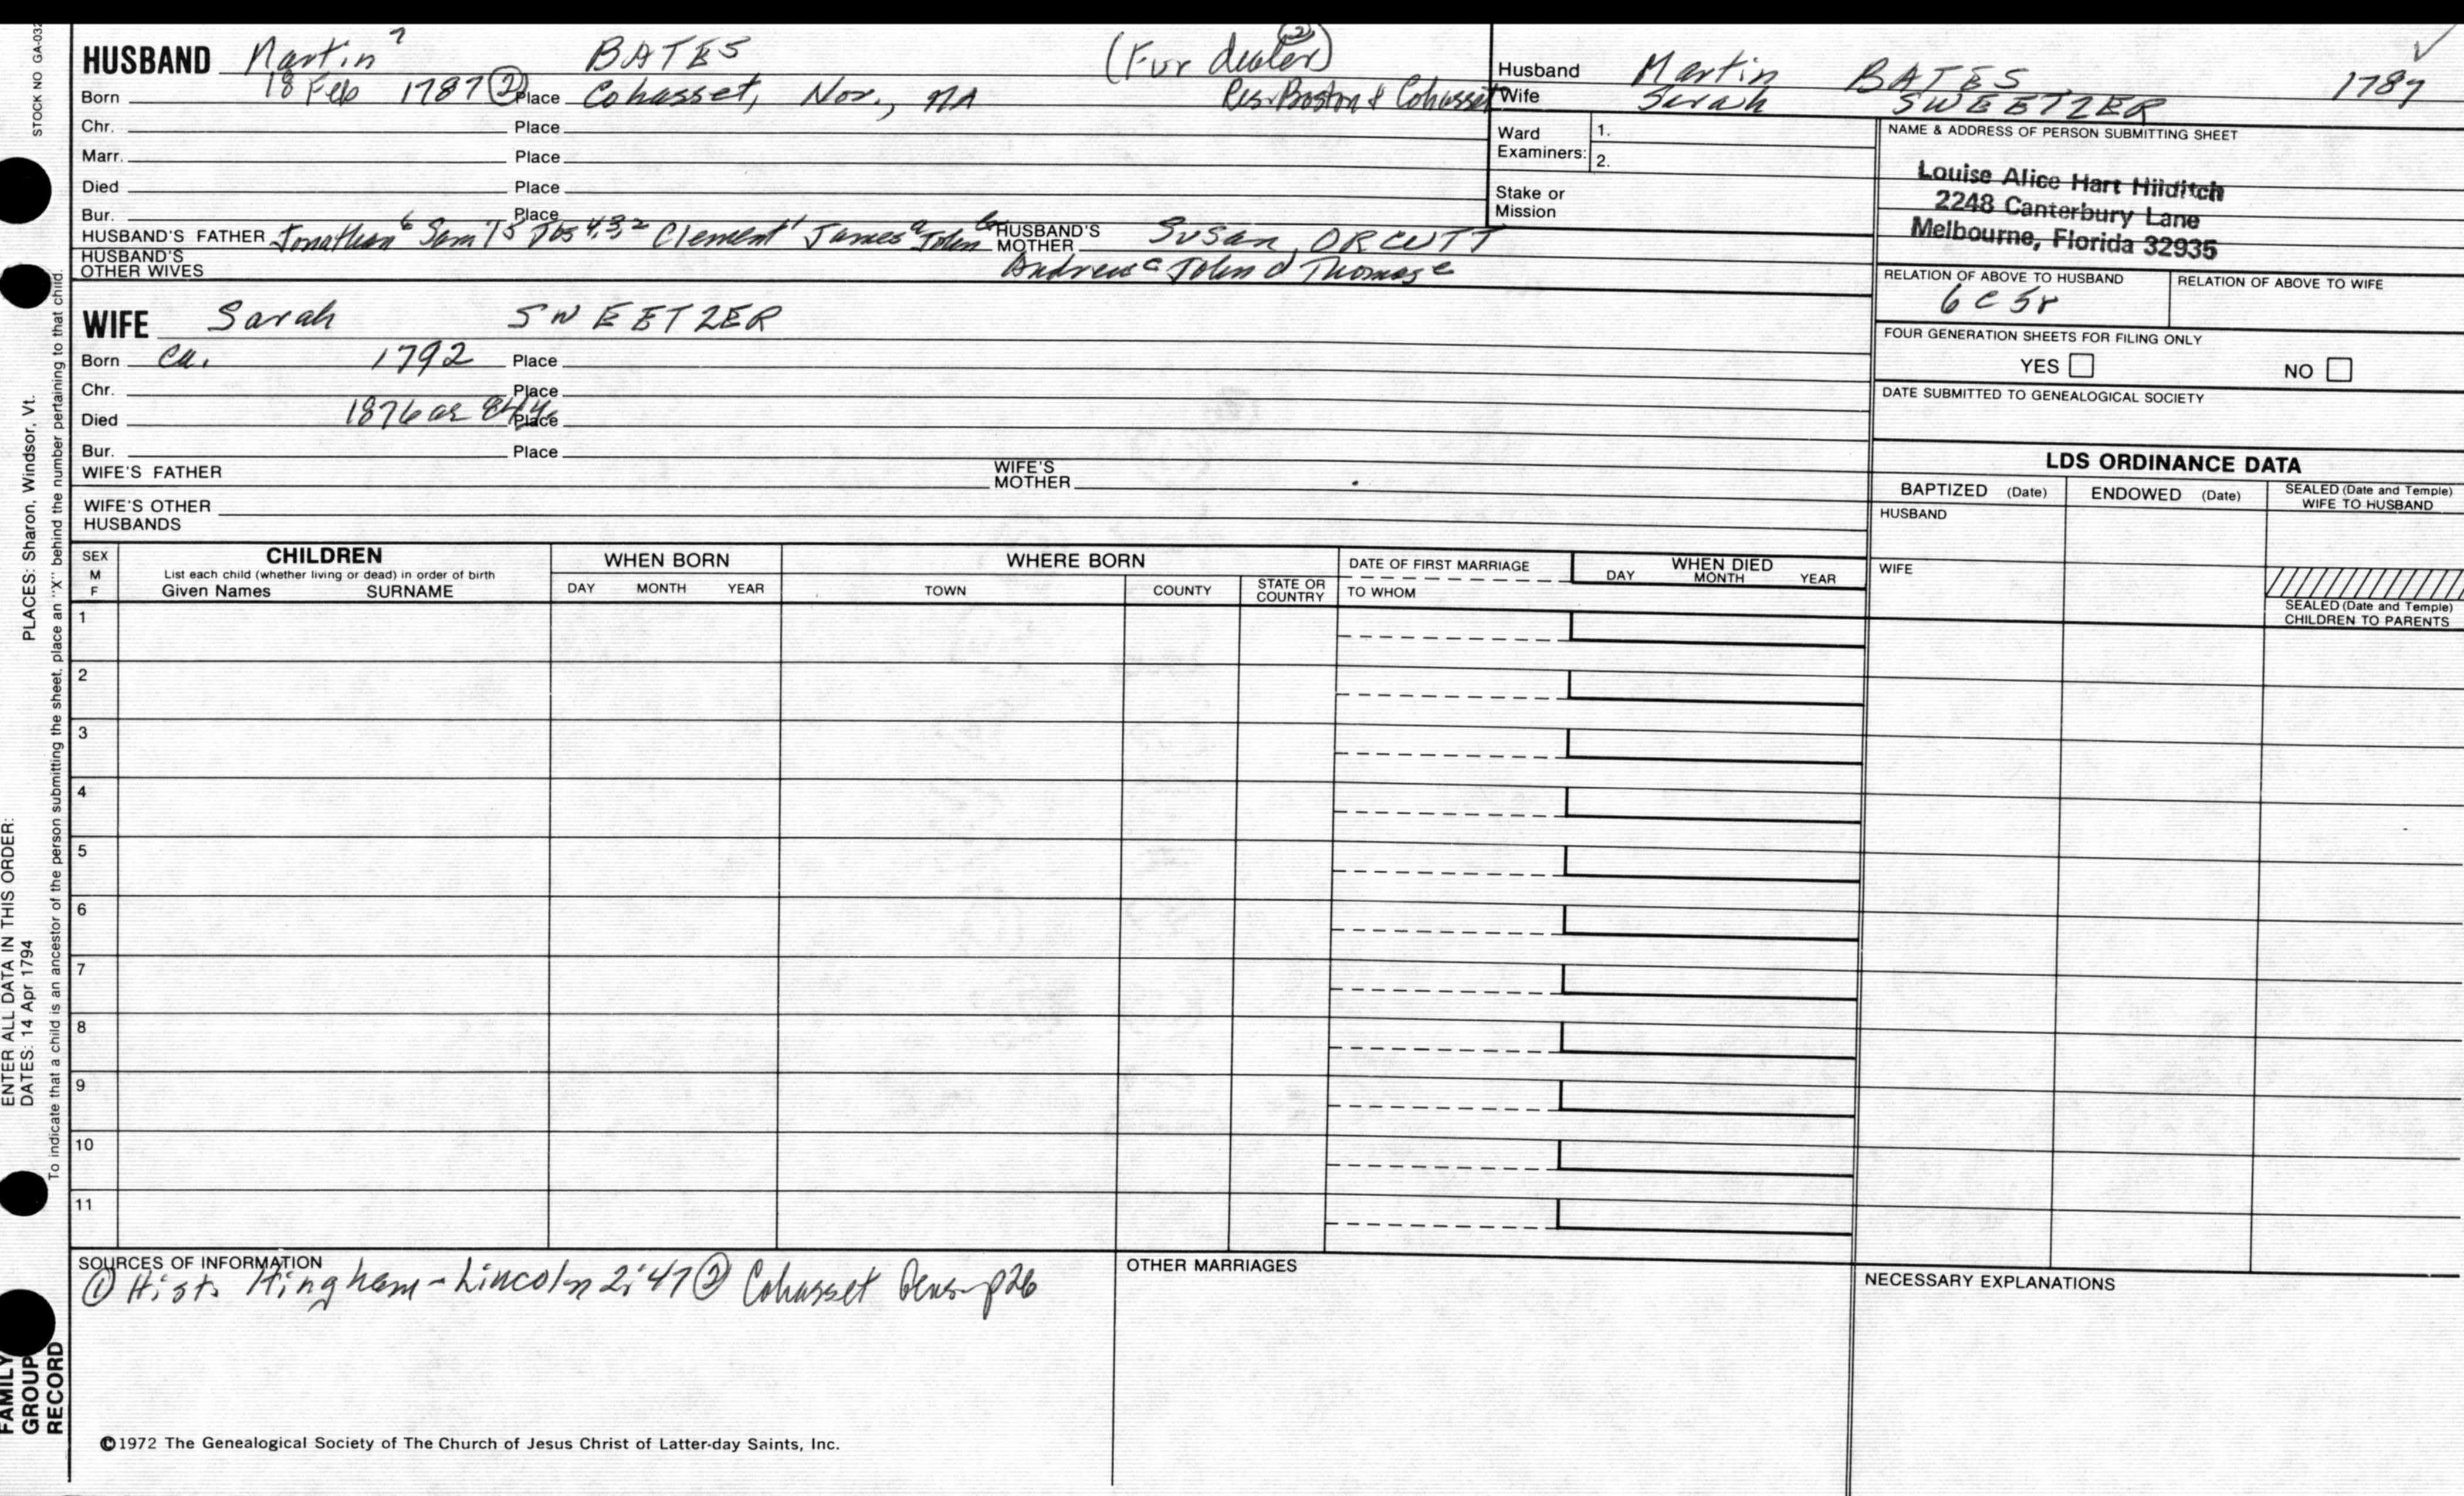 STOCK NO GA-032
HUSBAND Martin 7 BATES (Fur dealer) (2)
Born 18 Feb 1787 (2) Place Cohasset, Nor., MA Res. Boston & Cohasset
Chr. Place
Marr. Place
Died Place
Bur. Place
HUSBAND'S FATHER Jonathan 6 Sam'l 5 Jos 4,3,2 Clement 1 James a John b HUSBAND'S MOTHER Susan ORCUTT
HUSBAND'S OTHER WIVES Andrew c John d Thomas e
Husband Martin BATES 1787
Wife Sarah SWEETZER
Ward Examiners: 1.
2.
Stake or Mission
NAME & ADDRESS OF PERSON SUBMITTING SHEET
Louise Alice Hart Hilditch
2248 Canterbury Lane
Melbourne, Florida 32935
RELATION OF ABOVE TO HUSBAND RELATION OF ABOVE TO WIFE
6 C 5r
FOUR GENERATION SHEETS FOR FILING ONLY
YES NO
DATE SUBMITTED TO GENEALOGICAL SOCIETY
WIFE Sarah SWEETZER
Born ca. 1792 Place
Chr. Place
Died 1876 ae 84y. Place
Bur. Place
WIFE'S FATHER WIFE'S MOTHER
WIFE'S OTHER HUSBANDS
LDS ORDINANCE DATA
BAPTIZED (Date) ENDOWED (Date) SEALED (Date and Temple) WIFE TO HUSBAND
HUSBAND
WIFE
SEALED (Date and Temple) CHILDREN TO PARENTS
SEX M F
CHILDREN
List each child (whether living or dead) in order of birth
Given Names SURNAME
WHEN BORN
DAY MONTH YEAR
WHERE BORN
TOWN COUNTY STATE OR COUNTRY
DATE OF FIRST MARRIAGE
TO WHOM
WHEN DIED
DAY MONTH YEAR
1
2
3
4
5
6
7
8
9
10
11
SOURCES OF INFORMATION
(1) Hist. Hingham - Lincoln 2:47 (2) Cohasset Gens - p26
OTHER MARRIAGES
NECESSARY EXPLANATIONS
©1972 The Genealogical Society of The Church of Jesus Christ of Latter-day Saints, Inc.
ENTER ALL DATA IN THIS ORDER:
DATES: 14 Apr 1794 PLACES: Sharon, Windsor, Vt.
To indicate that a child is an ancestor of the person submitting the sheet, place an "X" behind the number pertaining to that child.
FAMILY
GROUP
RECORD